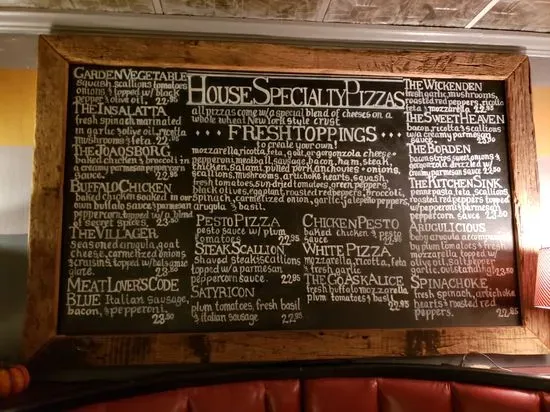 GARDEN VEGETABLE
squash, scallions, tomatoes
onions & topped w/ black
pepper & olive oil. 22.95
THE INSALATA
fresh spinach marinated
in garlic & olive oil, ricotta
mushrooms & feta. 22.95
THE
baked chicken & broccoli in
a creamy parmesan peppercorn
sauce. 22.95
BUFFALO CHICKEN
baked chicken soaked in our
own buffalo sauce w/ parmesan
peppercorn, topped w/ a blend
of secret spices. 23.50
THE VILLAGER
seasoned arugula, goat
cheese, carmelized onions
& raisins, topped w/ balsamic
glaze. 23.50
MEAT LOVERS CODE
BLUE Italian sausage,
bacon, & pepperoni. 23.50
HOUSE SPECIALTY PIZZAS
all pizzas come w/ a special blend of cheeses on a
whole wheat New York style crust
FRESH TOPPINGS
to create your own!
mozzarella, ricotta, feta, goat, or gorgonzola cheese
pepperoni, meatball, sausage, bacon, ham, steak,
chicken, salami, pulled pork, anchovies • onions,
scallions, mushrooms, artichoke hearts, squash,
fresh tomatoes, sundried tomatoes, green peppers,
black olives, eggplant, roasted red peppers, broccoli,
spinach, carmelized onion, garlic, jalapeño peppers
arugula & basil.
PESTO PIZZA
pesto sauce w/ plum
tomatoes 22.95
STEAK SCALLION
shaved steak & scallions
topped w/ a parmesan
peppercorn sauce. 22.95
SATYRICON
plum tomatoes, fresh basil
& italian sausage 22.95
CHICKEN PESTO
baked chicken & pesto
sauce. 22.95
WHITE PIZZA
mozzarella, ricotta, feta
& fresh garlic 22.95
THE GO ASK ALICE
fresh buffalo mozzarella
plum tomatoes & basil. 22.95
THE WICKENDEN
fresh garlic, mushrooms,
roasted red peppers, ricotta
feta & mozz. 22.95
THE SWEET HEAVEN
bacon, ricotta & scallions
w/ a creamy parmesan
sauce. 22.95
THE BORDEN
bacon strips, sweet onions &
gorgonzola drizzled w/
creamy parmesan
sauce. 22.95
THE KITCHEN SINK
penne pasta, feta, scallions
roasted red peppers, topped
w/ pepperoni & parmesan
peppercorn sauce 23.50
ARUGULICIOUS
baby arugula accompanied
by plum tomatoes & fresh
mozzarella topped w/
olive oil, salt, pepper
garlic, outstanding! 23.50
SPINACHOKE
fresh spinach, artichoke
hearts & roasted red
peppers. 22.95